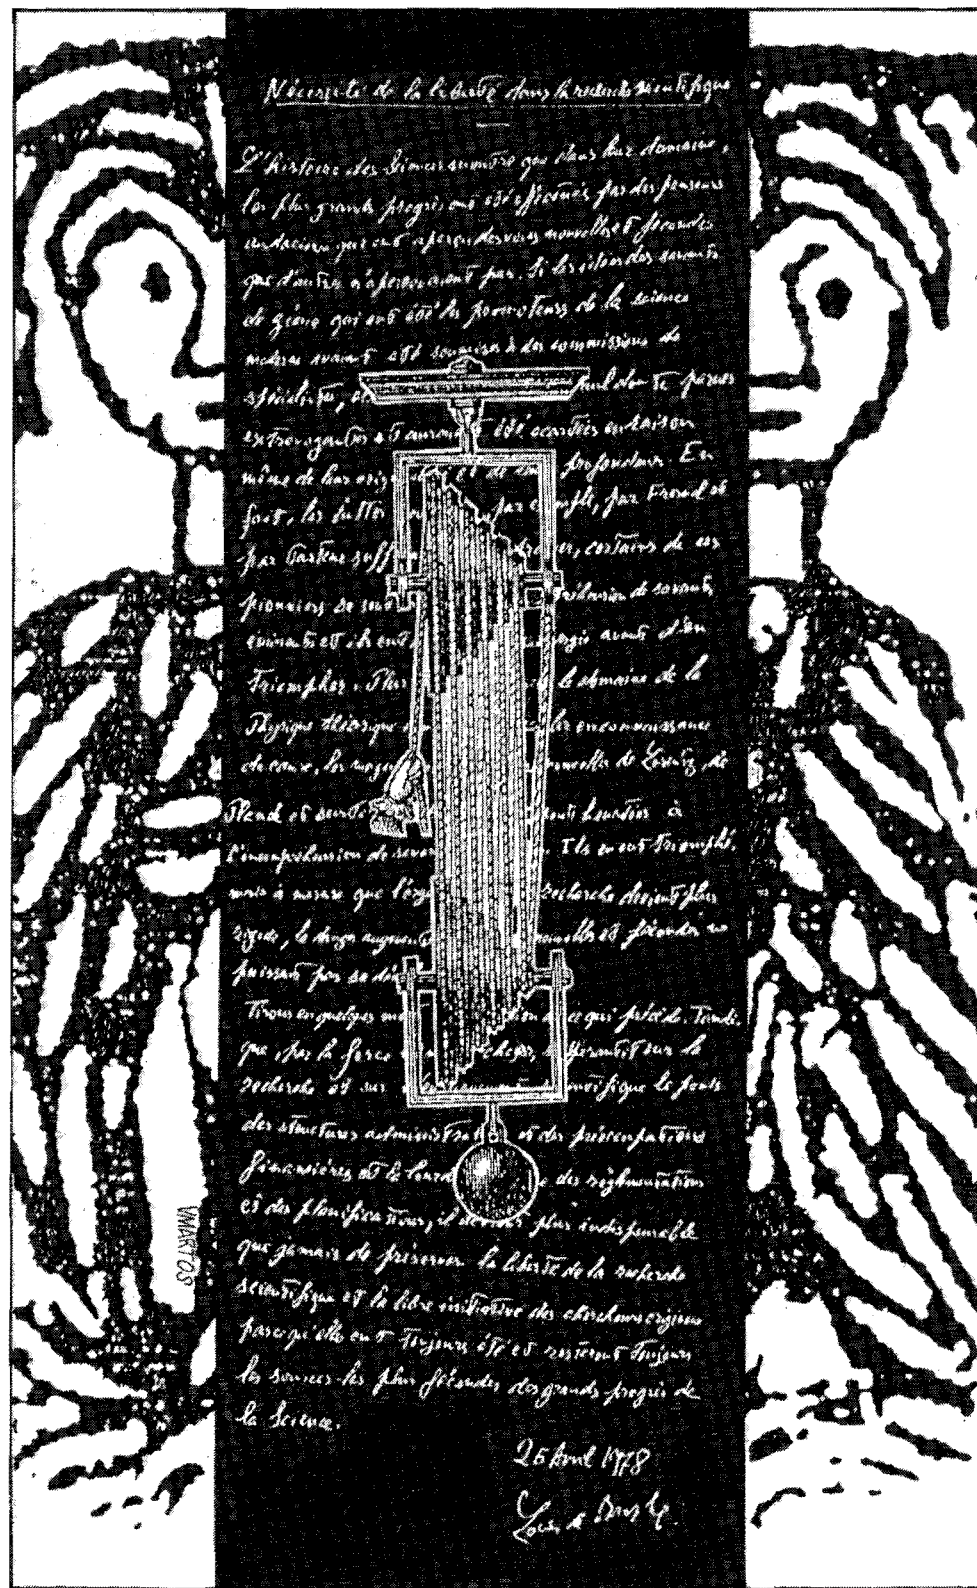 Nécessité de la liberté dans la recherche scientifique
L'histoire des Sciences montre que dans leur domaine,
les plus grands progrès ont été effectués par des penseurs
audacieux qui ont aperçu des voies nouvelles et fécondes
que d'autres n'apercevaient pas. Si les idées des savants
de génie qui ont été les promoteurs de la science
moderne avaient été soumises à des commissions de
spécialistes, paru
extravagantes et auraient été écartées en raison
même de leur et de profondeur. En
fait, les luttes par exemple, par Fresnel et
par Pasteur certains de ces
pionniers se sont de savants
éminents et ils ont avant d'en
triompher. Plus le domaine de la
Physique théorique en connaissance
de cause, les nouvelles de Lorentz, de
Planck et à
l'incompréhension de Ils en ont triomphé,
mais à mesure que recherche devient plus
rigide, le danger augmente et fécondes ne
puissent pas se
Tirons en quelques ce qui précède. Tandis
que, par la force sur la
recherche et sur scientifique le poids
des structures administratives et des préoccupations
financières et la des réglementations
et des planifications, il devient plus indispensable
que jamais de préserver la liberté de la recherche
scientifique et la libre initiative des chercheurs originaux
parce qu'elles ont toujours été et resteront toujours
les sources les plus fécondes des grands progrès de
la Science.
25 Avril 1978
Louis de Broglie
VMARTOS